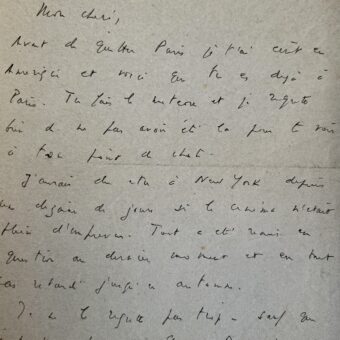 Mon chéri,
Avant de quitter Paris je t'ai écrit en
Amérique et voici que tu es déjà à
Paris. Tu fais le météore et je regrette
bien de ne pas avoir été là pour te voir
à ton point de chute.
J'aurais dû être à New York depuis
une dizaine de jours si le cinéma n'était
plein d'imprévus. Tout a été remis en
question au dernier moment et en tout
cas retardé jusqu'à automne.
Je ne le regrette pas trop - sauf que